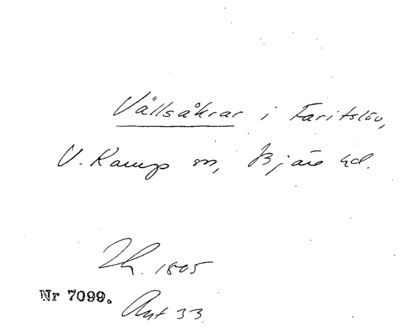 Vållsåkrar i Faritslöv,
V. Karup sn, Bjäre hd.
Lh. 1805
Nr 7099. Akt 33